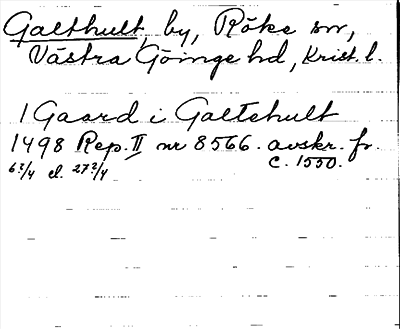 Galthult, by, Röke sn,
Västra Göinge hd, Krist. l.
1 Gaard i Galtehult
1498 Rep. II nr 8566. avskr. fr.
6?/4 el. 27?/4 c. 1550.